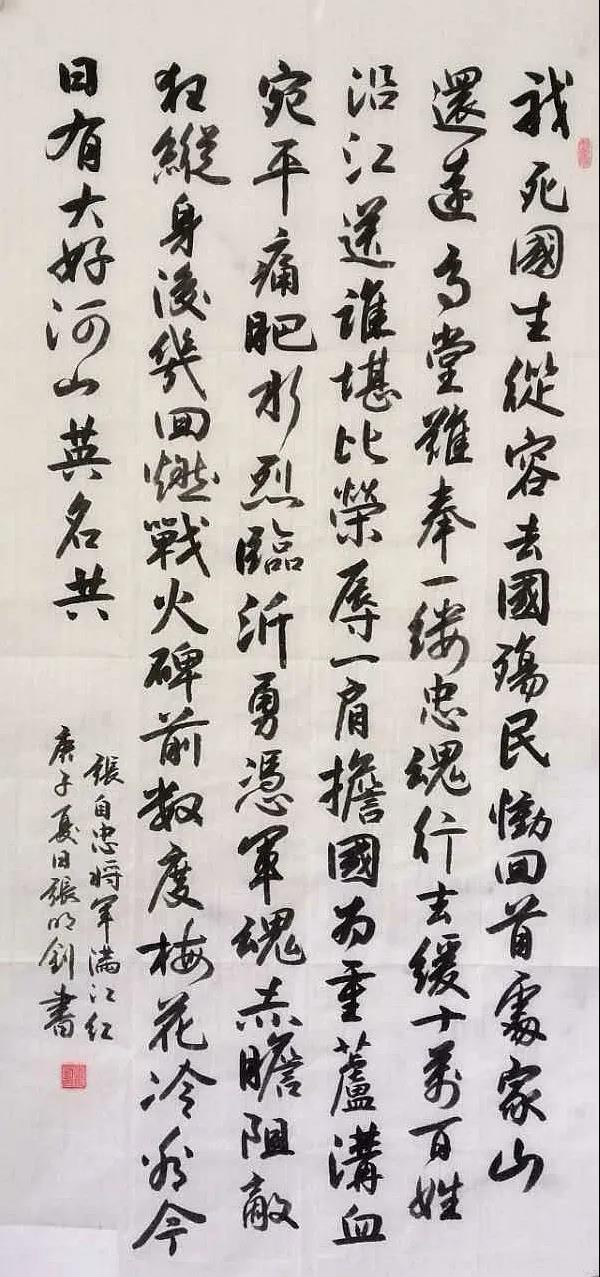 我死國生從容去國殤民慟回首處家山
還遠高堂難奉一縷忠魂行去緩十萬百姓
沿江送誰堪比榮辱一肩擔國為重蘆溝血
宛平痛肥水烈臨沂勇憑軍魂赤膽阻敵
狂縱身後幾回燃戰火碑前數度梅花冷看今
日有大好河山英名共
張自忠將軍滿江紅
庚子夏日張明釗書